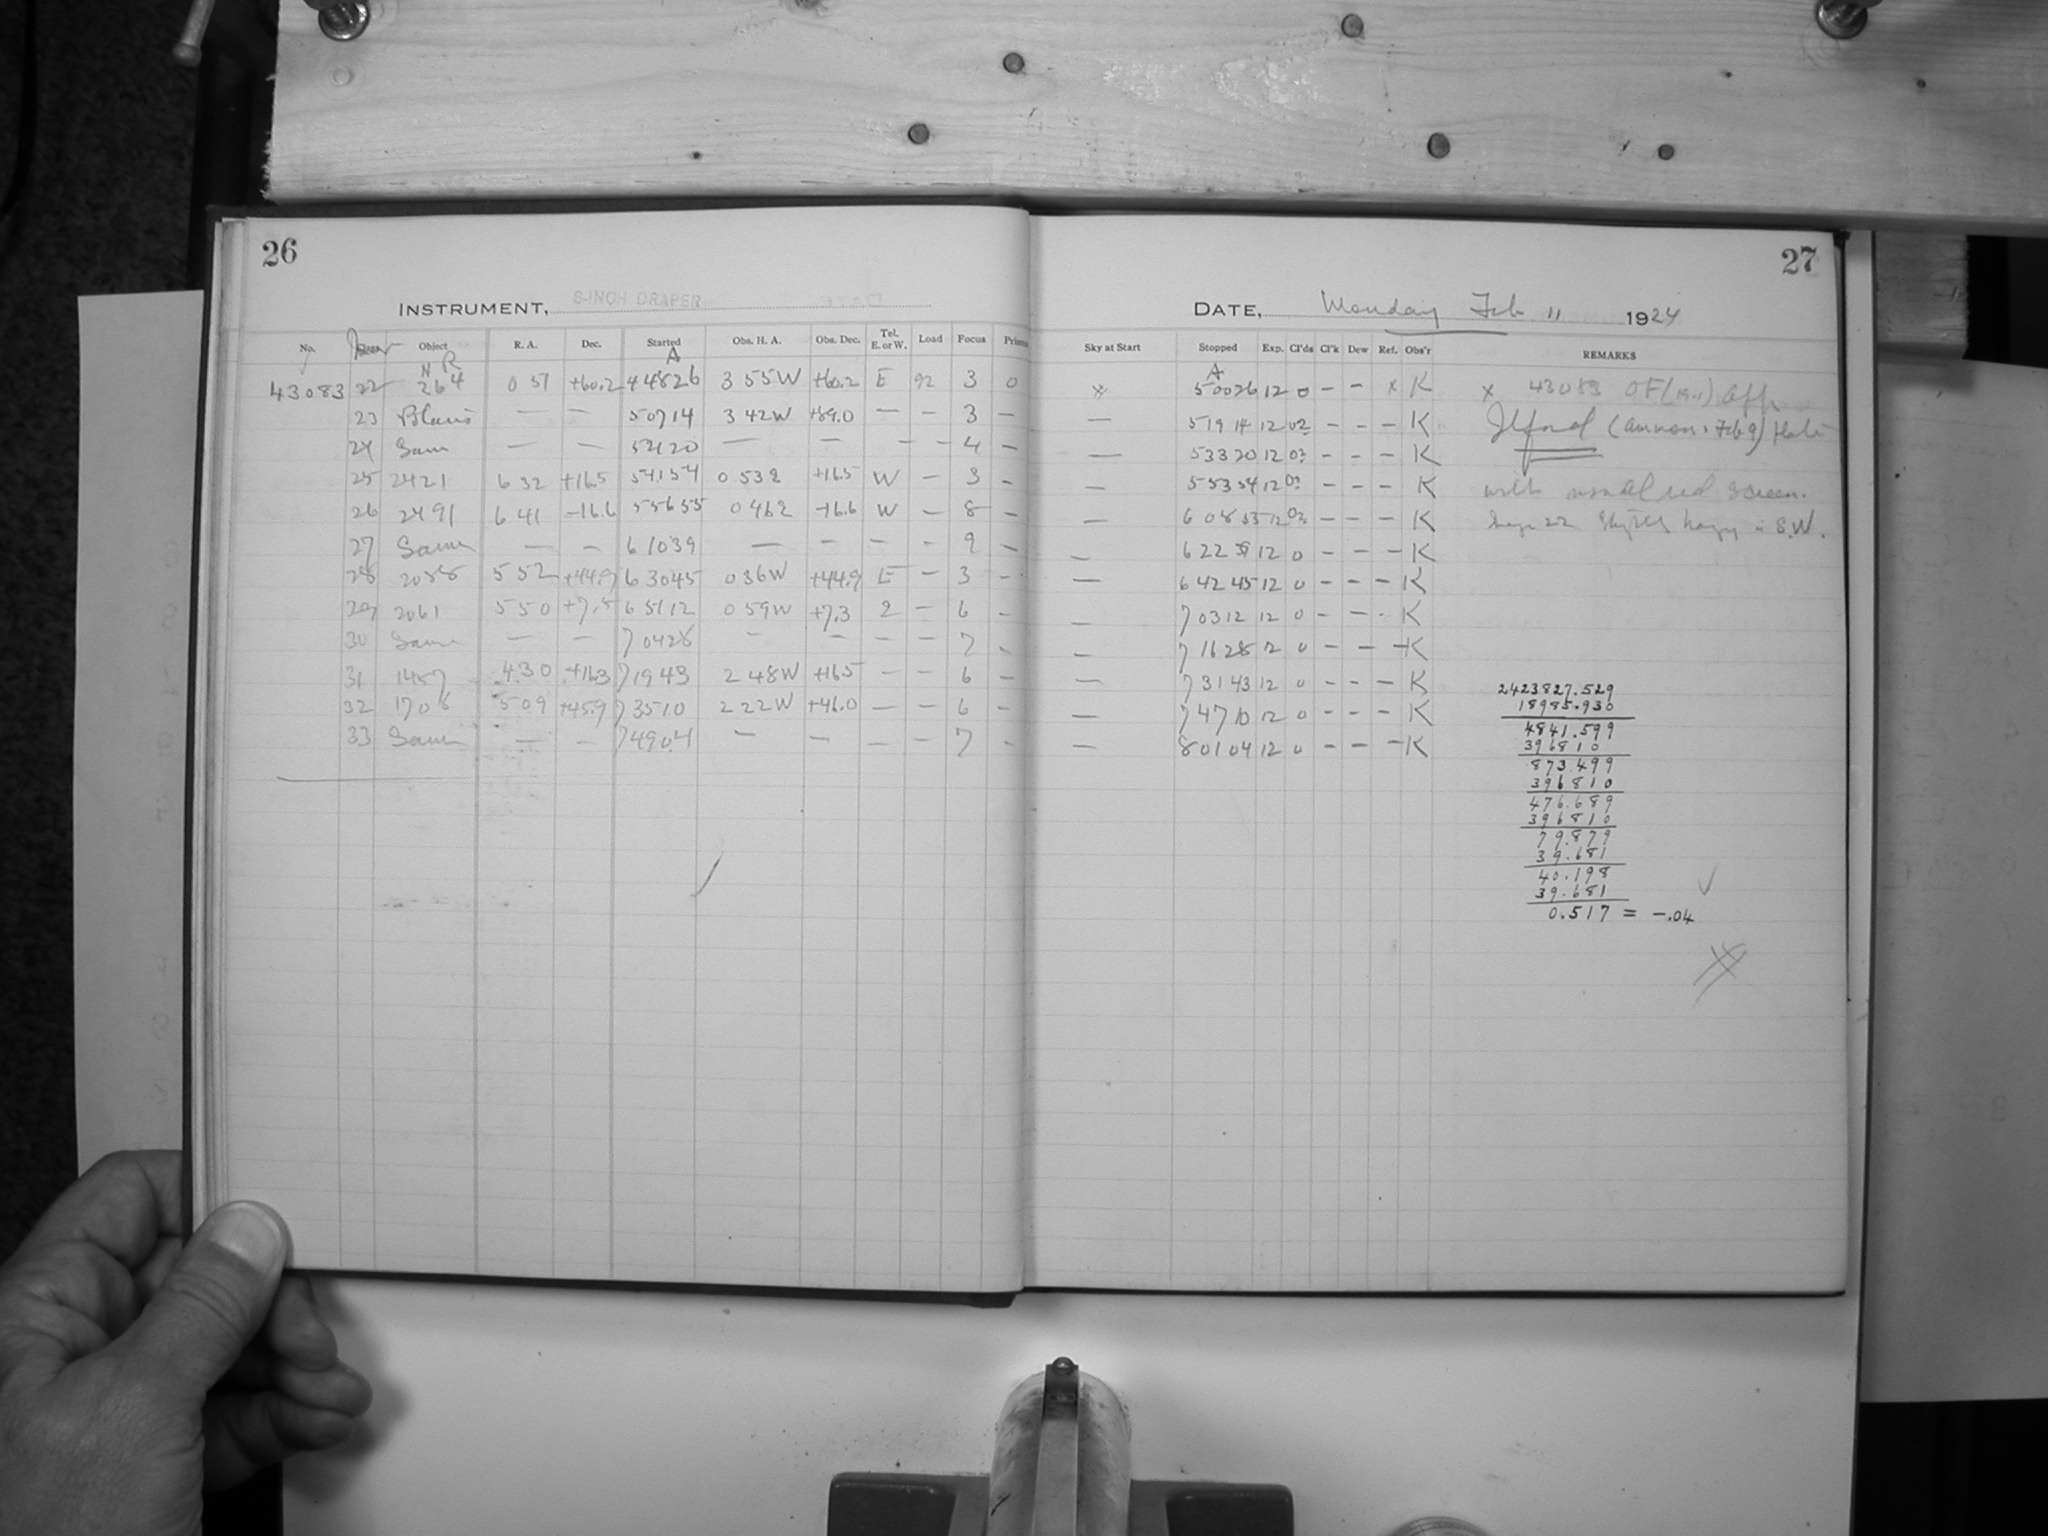 26
27
INSTRUMENT, 8-INCH DRAPER
DATE, Monday Feb 11 1924
No. Object R. A. Dec. Started Obs. H. A. Obs. Dec. Tel. E. or W. Load Focus Prisms
Sky at Start Stopped Exp. Cl'ds Cl'k Dew Ref. Obs'r REMARKS
N R A
A
43083 22 264 0 51 +60.2 4 48 26 3 55 W +60.2 E 92 3 0
5 00 26 12 0 - - x K x 43083 OF
23 Polaris — — 5 07 14 3 42 W +89.0 — — 3 —
— 5 19 14 12 0? - - - K Ilford (ammon. Feb 9) Plate
24 Same — — 5 21 20 — — — — 4 —
— 5 33 20 12 0? - - - K
25 2421 6 32 +16.5 5 41 54 0 53 2 +16.5 W — 3 -
— 5 53 54 12 0? - - - K with usual red screen.
26 2491 6 41 -16.6 5 56 55 0 46 2 -16.6 W - 8 -
— 6 08 55 12 0? - - - K 22 hazy in S.W.
27 Same — — 6 10 39 — — — - 9 —
— 6 22 39 12 0 - - - K
28 2088 5 52 +44.9 6 30 45 0 36 W +44.9 E — 3 -
— 6 42 45 12 0 - - - K
29 2061 5 50 +7.5 6 51 12 0 59 W +7.3 2 - 6 -
— 7 03 12 12 0 - - - K
30 Same — — 7 04 28 - — — — 7 -
— 7 16 28 12 0 - - - K
31 1457 4 30 +16.3 7 19 43 2 48 W +16.5 — — 6 -
— 7 31 43 12 0 - - - K
32 1708 5 09 +45.9 7 35 10 2 22 W +46.0 — — 6 -
— 7 47 10 12 0 - - - K
33 Same — — 7 49 04 — — — — 7 -
— 8 01 04 12 0 - - - K
2423827.529
18985.930
4841.599
396810
873.499
396810
476.689
396810
79.879
39.681
40.198
39.681
0.517 = -.04